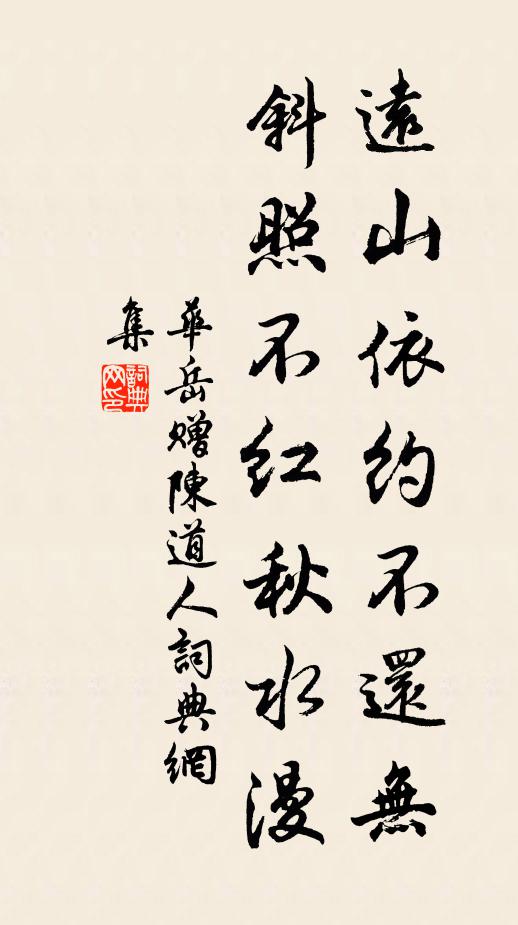 遠山依約不還無
斜照不红秋水漫
華岳赠陳道人詞典網
集
詞典
网印